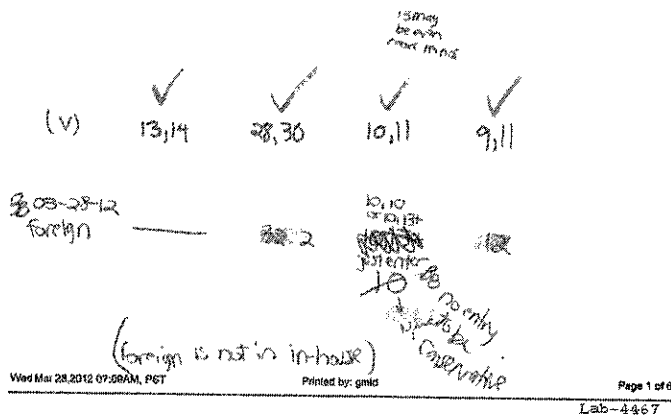 13 may
be even
(v) 13,14 28,30 10,11 9,11
03-28-12
foreign
10,10
or 10,13+
just enter
10
no entry
to be
conservative
(foreign is not in in-house)
Wed Mar 28,2012 07:09AM, PST Printed by: gmid Page 1 of 6
Lab-4467